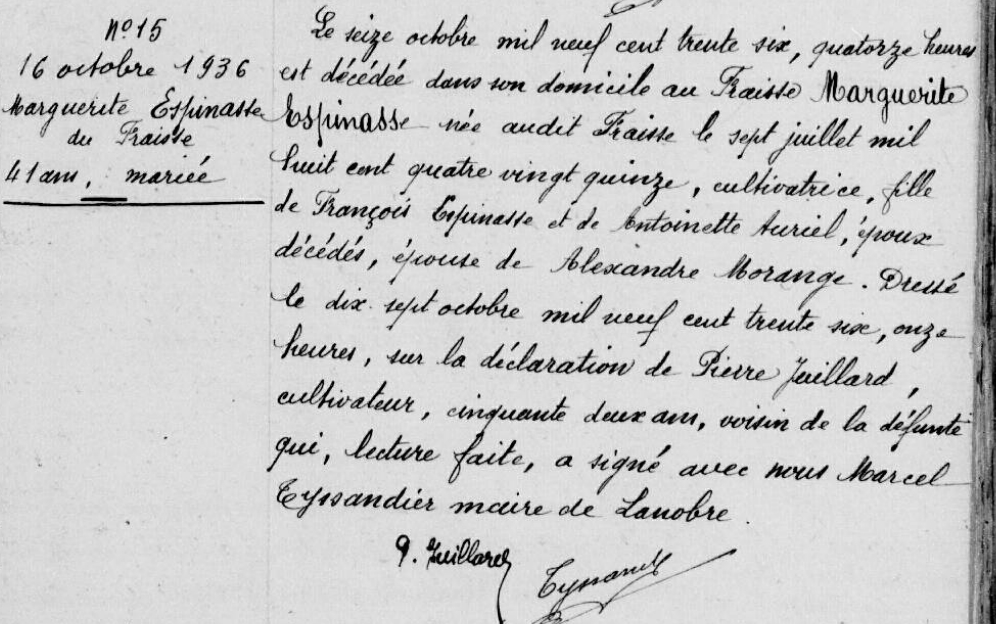 Nº 15
16 octobre 1936
Marguerite Espinasse
du Fraisse
41 ans, mariée
Le seize octobre mil neuf cent trente six, quatorze heures
est décédée dans son domicile au Fraisse Marguerite
Espinasse née audit Fraisse le sept juillet mil
huit cent quatre vingt quinze, cultivatrice, fille
de François Espinasse et de Antoinette Auriel, époux
décédés, épouse de Alexandre Morange. Dressé
le dix sept octobre mil neuf cent trente six, onze
heures, sur la déclaration de Pierre Juillard,
cultivateur, cinquante deux ans, voisin de la défunte
qui, lecture faite, a signé avec nous Marcel
Tyssandier maire de Lanobre.
P. Juillard